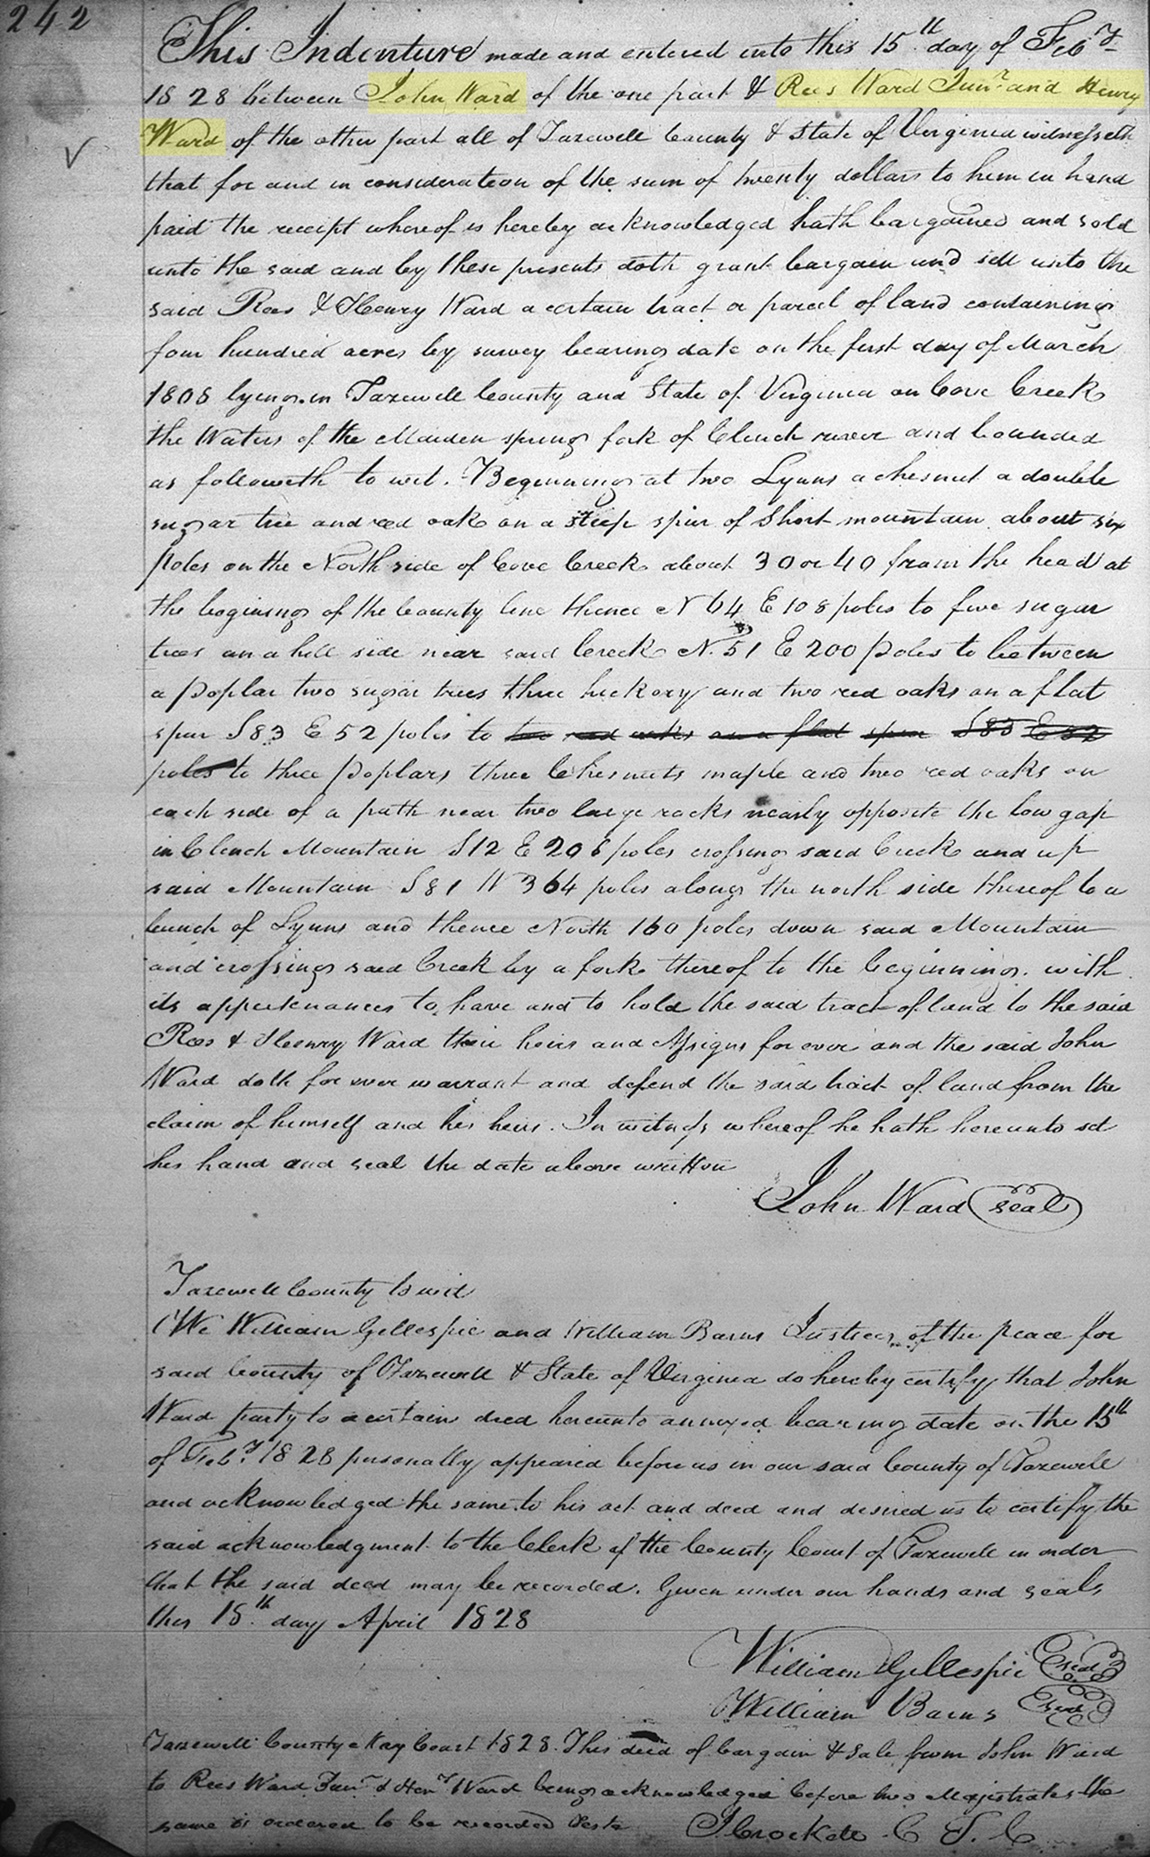 242
This Indenture made and entered into this 15th day of Feby
1828 between John Ward of the one part & Rees Ward Junr and Henry
Ward of the other part all of Tazewell County & State of Virginia witnesseth
that for and in consideration of the sum of twenty dollars to him in hand
paid the receipt whereof is hereby acknowledged hath bargained and sold
unto the said and by these presents doth grant bargain and sell unto the
said Rees & Henry Ward a certain tract or parcel of land containing
four hundred acres by survey bearing date on the first day of March
1808 lying in Tazewell County and State of Virginia on Cove Creek
the Waters of the Maiden spring fork of Clinch river and bounded
as followeth to wit. Beginning at two Lynns a chesnut a double
sugar tree and red oak on a steep spur of Short mountain about six
poles on the North side of Cove Creek about 30 or 40 from the head at
the begining of the County line thence N 64 E 108 poles to five sugar
trees on a hill side near said Creek N. 51 E 200 poles to between
a poplar two sugar trees three hickory and two red oaks on a flat
spur S83 E 52 poles to two red oaks on a flat spur S83 E 52
poles to three poplars three Chesnuts maple and two red oaks on
each side of a path near two large rocks nearly opposite the low gap
in Clinch Mountain S12 E 206 poles crossing said Creek and up
said Mountain S81 W 364 poles along the north side thereof to a
bunch of Lynns and thence North 160 poles down said Mountain
and crossing said Creek by a fork thereof to the beginning. with
its appertenances to have and to hold the said tract of land to the said
Rees & Henry Ward their heirs and Assigns for ever and the said John
Ward doth for ever warrant and defend the said tract of land from the
claim of himself and his heirs. In witness whereof he hath hereunto set
his hand and seal the date above written
John Ward seal
Tazewell County to wit
We William Gillespie and William Barns Justices of the peace for
said County of Tazewell & State of Virginia do hereby certify that John
Ward party to a certain deed hereunto annexed bearing date on the 15th
of Feby 1828 personally appeared before us in our said County of Tazewell
and acknowledged the same to his act and deed and desired us to certify the
said acknowledgment to the Clerk of the County Court of Tazewell in order
that the said deed may be recorded. Given under our hands and seals
this 15th day April 1828
William Gillespie seal
William Barns seal
Tazewell County May Court 1828. This deed of bargain & sale from John Ward
to Rees Ward Junr & Heny Ward being acknowledged before two Magistrates the
same is ordered to be recorded Teste
J Crockett C. T. C